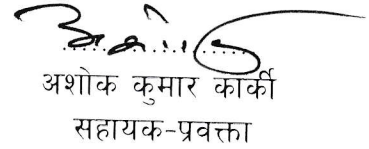 अशोक कुमार कार्की
सहायक-प्रवक्ता